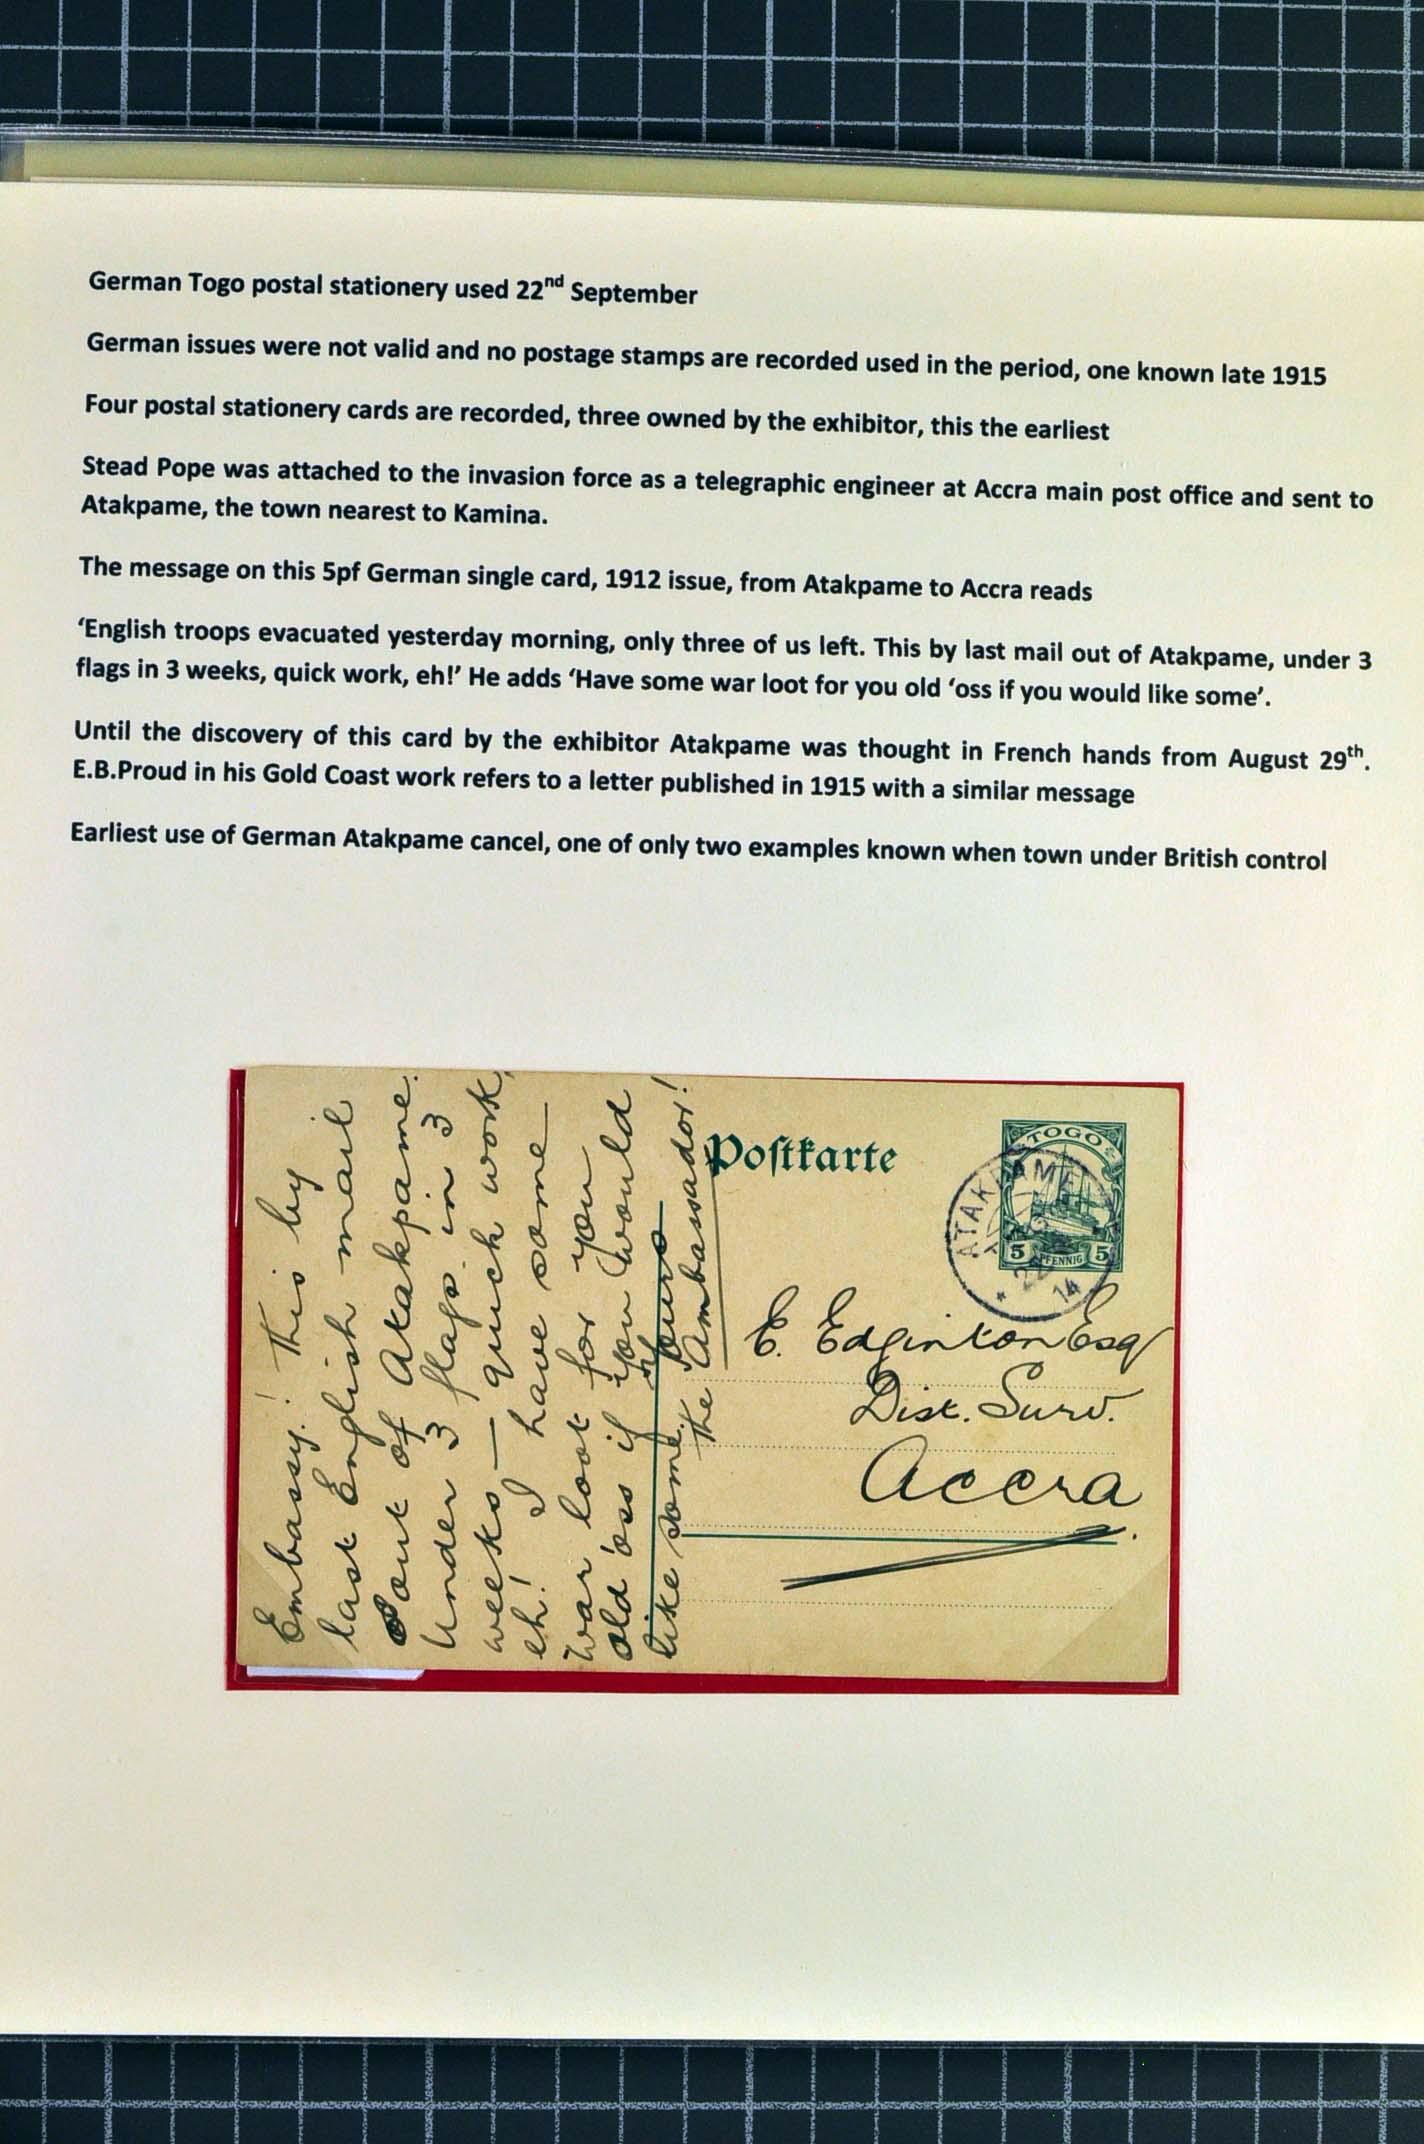 German Togo postal stationery used 22nd September
German issues were not valid and no postage stamps are recorded used in the period, one known late 1915
Four postal stationery cards are recorded, three owned by the exhibitor, this the earliest
Stead Pope was attached to the invasion force as a telegraphic engineer at Accra main post office and sent to
Atakpame, the town nearest to Kamina.
The message on this 5pf German single card, 1912 issue, from Atakpame to Accra reads
‘English troops evacuated yesterday morning, only three of us left. This by last mail out of Atakpame, under 3
flags in 3 weeks, quick work, eh!’ He adds ‘Have some war loot for you old ‘oss if you would like some’.
Until the discovery of this card by the exhibitor Atakpame was thought in French hands from August 29th.
E.B.Proud in his Gold Coast work refers to a letter published in 1915 with a similar message
Earliest use of German Atakpame cancel, one of only two examples known when town under British control
Embassy! This by
last English mail
out of Atakpame.
Under 3 flags in 3
weeks — quick work,
eh! I have some
war loot for you
old 'oss if you would
like some. Yours
The Ambassador!
Postkarte
TOGO
5 PFENNIG 5
ATAKPAME
22
14
E. Edginton Esq
Dist. Surv.
Accra.